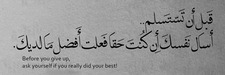 قبل أن تستسلم..
أسأل نفسك أن كنت حقا فعلت أفضل مالديك.
Before you give up,
ask yourself if you really did your best!